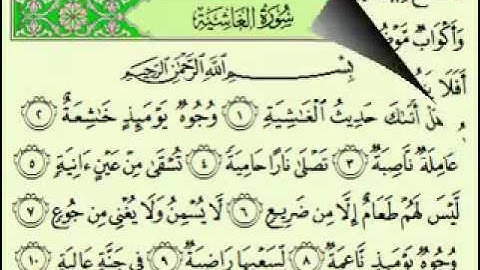 سُورَةُ الغَاشِيَةِ
وَأَكْوَابٌ
بِسْمِ اللَّهِ الرَّحْمَٰنِ الرَّحِيمِ
أَفَلَا
هَلْ أَتَىٰكَ حَدِيثُ الْغَاشِيَةِ ١ وُجُوهٌ يَوْمَئِذٍ خَاشِعَةٌ ٢
عَامِلَةٌ نَاصِبَةٌ ٣ تَصْلَىٰ نَارًا حَامِيَةً ٤ تُسْقَىٰ مِنْ عَيْنٍ ءَانِيَةٍ ٥
لَيْسَ لَهُمْ طَعَامٌ إِلَّا مِن ضَرِيعٍ ٦ لَا يُسْمِنُ وَلَا يُغْنِي مِن جُوعٍ ٧
وُجُوهٌ يَوْمَئِذٍ نَاعِمَةٌ ٨ لِسَعْيِهَا رَاضِيَةٌ ٩ فِي جَنَّةٍ عَالِيَةٍ ١٠